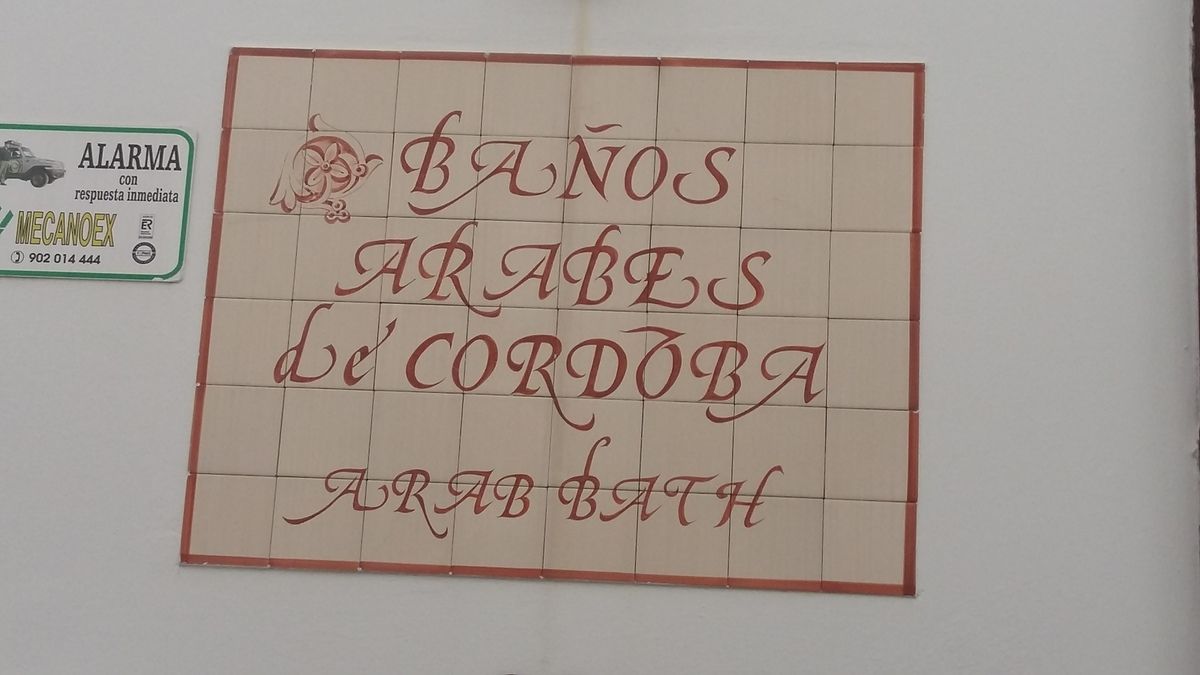 ALARMA
con
respuesta inmediata
MECANOEX
ER
902 014 444
BAÑOS
ARABES
de CORDOBA
ARAB BATH